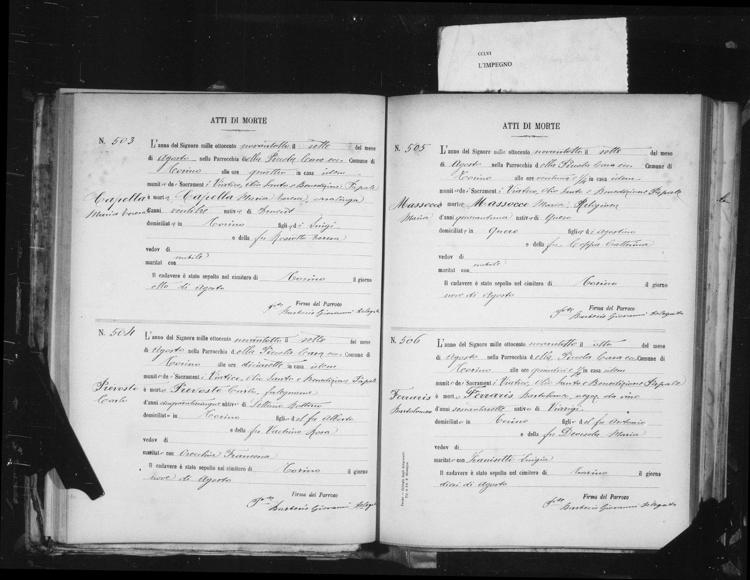 CCLVI
L'IMPEGNO
ATTI DI MORTE
N. 503
L'anno del Signore mille ottocento novantotto il sette del mese
di Agosto nella Parrocchia della Piccola Casa Comune di
Torino alle ore quattro in casa idem
munit de' Sacramenti Viatico, Olio Santo e Benedizione Papale
Capella
Maria
è mort Capella Maria casalinga
d'anni ventitre nativ di
domiciliat in Torino figli di Luigi
e della fu Teresa
vedov di nubile
maritat con
Il cadavere è stato sepolto nel cimitero di Torino il giorno
otto di Agosto
Firma del Parroco
Giovanni delegato
N. 504
L'anno del Signore mille ottocento novantotto il sette del mese
di Agosto nella Parrocchia della Piccola Casa Comune di
Torino alle ore diciasette in casa idem
munit de' Sacramenti Viatico, Olio Santo e Benedizione Papale
Pierosto
Carlo
è mort Pierosto Carlo, falegname
d'anni cinquantacinque nativ di Settimo Vittone
domiciliat in Torino figli del fu Alberto
e della fu Rosa
vedov di
maritat con Francesca
Il cadavere è stato sepolto nel cimitero di Torino il giorno
nove di Agosto
Firma del Parroco
Giovanni delegato
ATTI DI MORTE
N. 505
L'anno del Signore mille ottocento novantotto il sette del mese
di Agosto nella Parrocchia della Piccola Casa Comune di
Torino alle ore ventuna 1/2 in casa idem
munit de' Sacramenti Viatico, Olio Santo e Benedizione Papale
Massocco
Maria
è mort Massocco Maria, Religiosa
d'anni quarantuna nativ di Quero
domiciliat in Quero figli di Agostino
e della fu Coppa Catterina
vedov di nubile
maritat con
Il cadavere è stato sepolto nel cimitero di Torino il giorno
nove di Agosto
Firma del Parroco
Giovanni delegato
N. 506
L'anno del Signore mille ottocento novantotto il otto del mese
di Agosto nella Parrocchia della Piccola Casa Comune di
Torino alle ore quindici in casa idem
munit de' Sacramenti Viatico, Olio Santo e Benedizione Papale
Ferraris
Bartolomeo
è mort Ferraris Bartolomeo, da vino
d'anni sessantasette nativ di
domiciliat in Torino figli del fu Antonio
e della fu Maria
vedov di
maritat con Luigia
Il cadavere è stato sepolto nel cimitero di Torino il giorno
dieci di Agosto
Firma del Parroco
Giovanni delegato